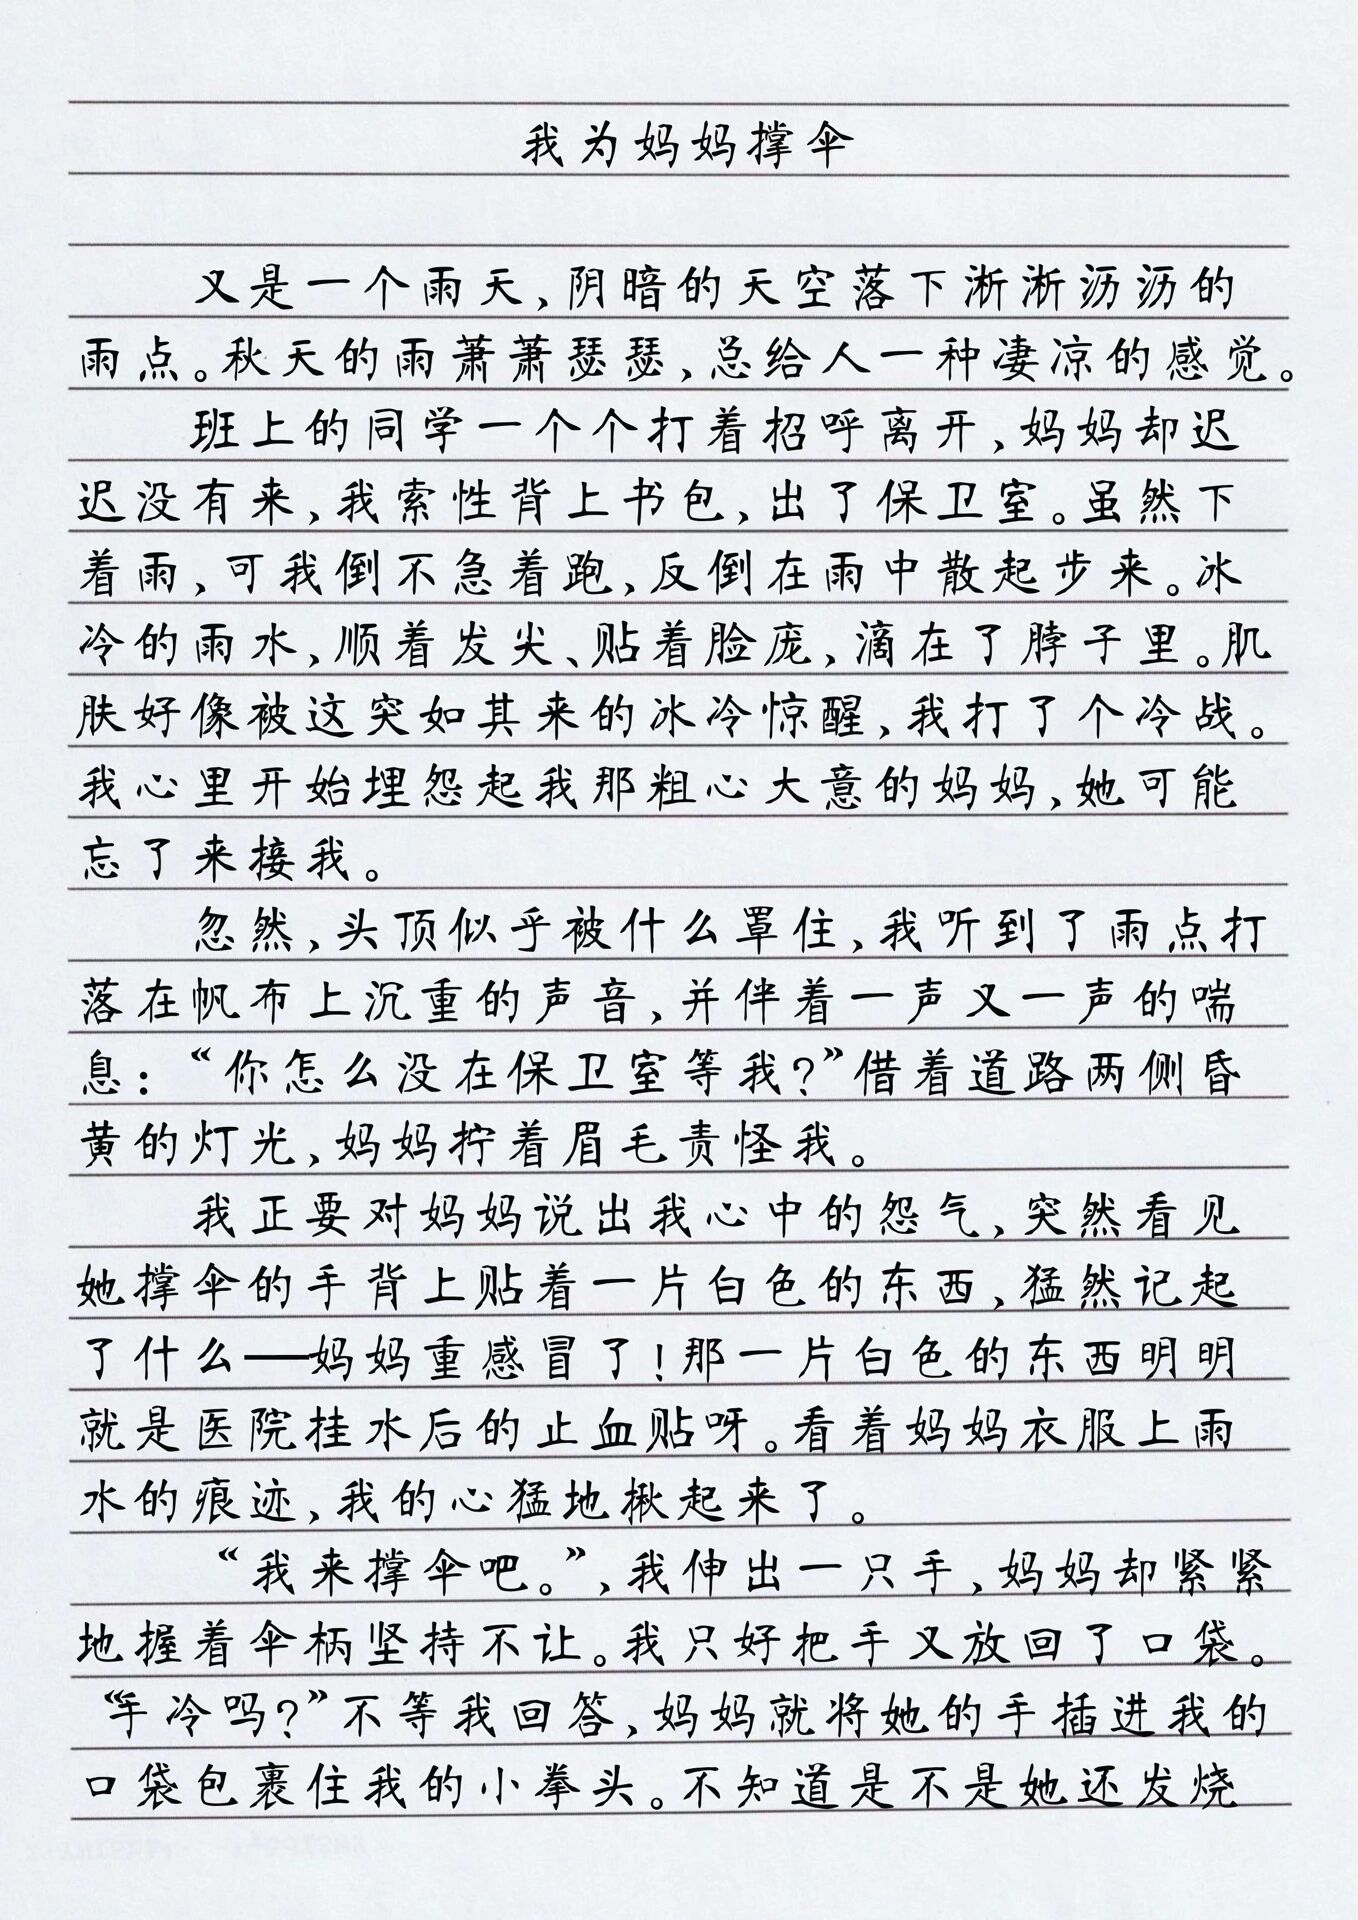 我为妈妈撑伞
又是一个雨天,阴暗的天空落下淅淅沥沥的
雨点。秋天的雨萧萧瑟瑟,总给人一种凄凉的感觉。
班上的同学一个个打着招呼离开,妈妈却迟
迟没有来,我索性背上书包,出了保卫室。虽然下
着雨,可我倒不急着跑,反倒在雨中散起步来。冰
冷的雨水,顺着发尖、贴着脸庞,滴在了脖子里。肌
肤好像被这突如其来的冰冷惊醒,我打了个冷战。
我心里开始埋怨起我那粗心大意的妈妈,她可能
忘了来接我。
忽然,头顶似乎被什么罩住,我听到了雨点打
落在帆布上沉重的声音,并伴着一声又一声的喘
息:“你怎么没在保卫室等我?”借着道路两侧昏
黄的灯光,妈妈拧着眉毛责怪我。
我正要对妈妈说出我心中的怨气,突然看见
她撑伞的手背上贴着一片白色的东西,猛然记起
了什么——妈妈重感冒了!那一片白色的东西明明
就是医院挂水后的止血贴呀。看着妈妈衣服上雨
水的痕迹,我的心猛地揪起来了。
“我来撑伞吧。”,我伸出一只手,妈妈却紧紧
地握着伞柄坚持不让。我只好把手又放回了口袋。
“手冷吗?”不等我回答,妈妈就将她的手插进我的
口袋包裹住我的小拳头。不知道是不是她还发烧